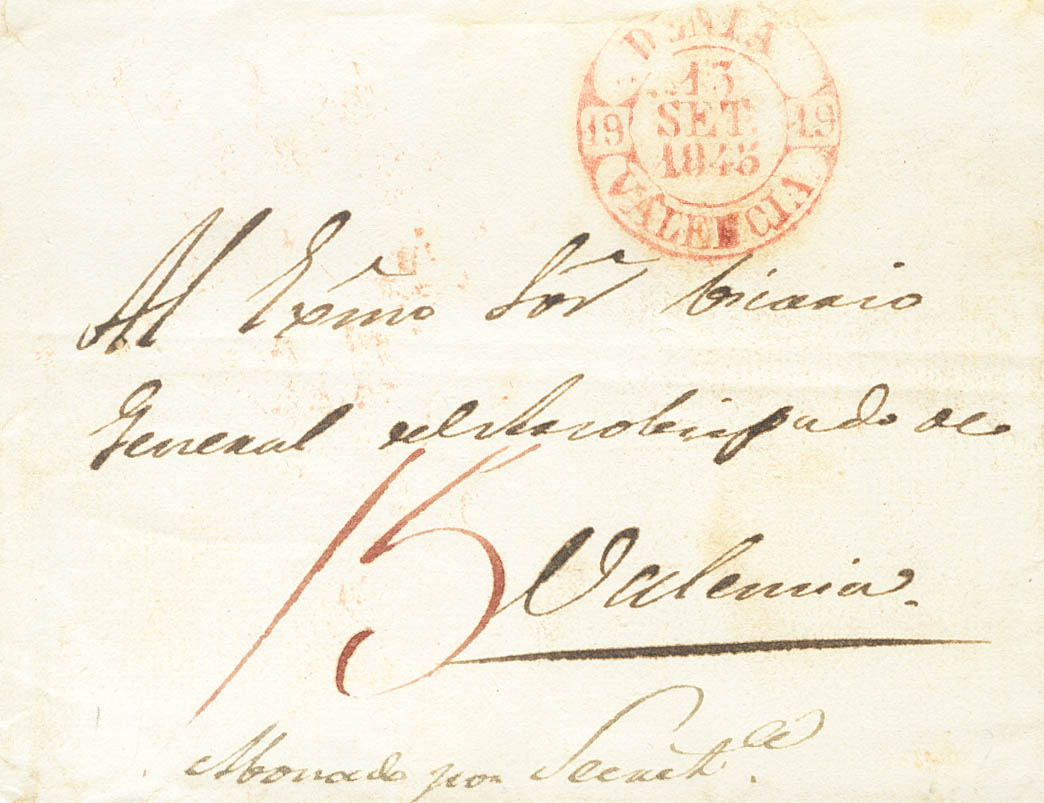 DENIA
13
SET.
1845
19 19
VALENCIA
Al Exmo Sor Vicario
General del Arzobispado de
Valencia.
15
Abonado por Secret.